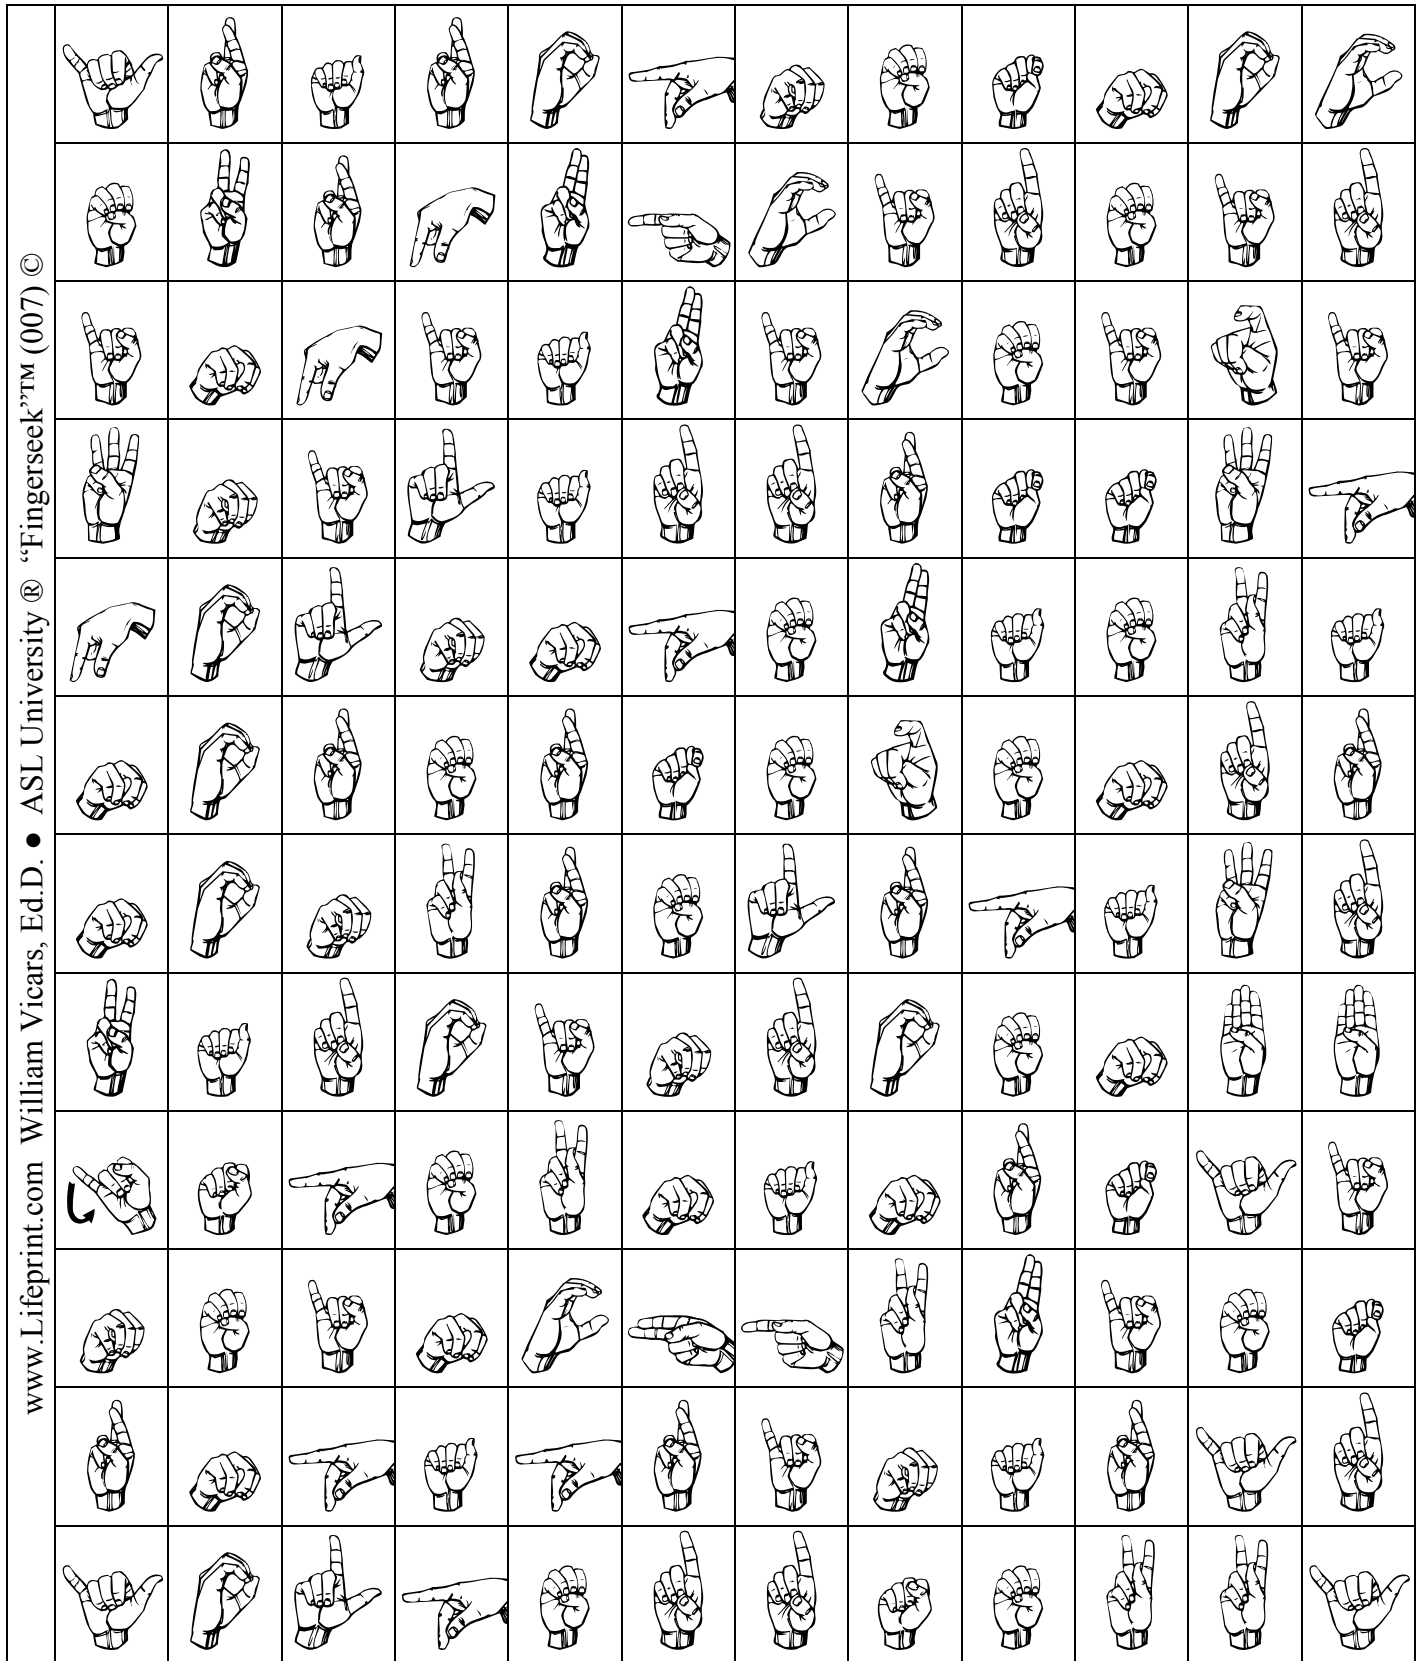 www.Lifeprint.com William Vicars, Ed.D. ● ASL University ® “Fingerseek”™ (007) ©